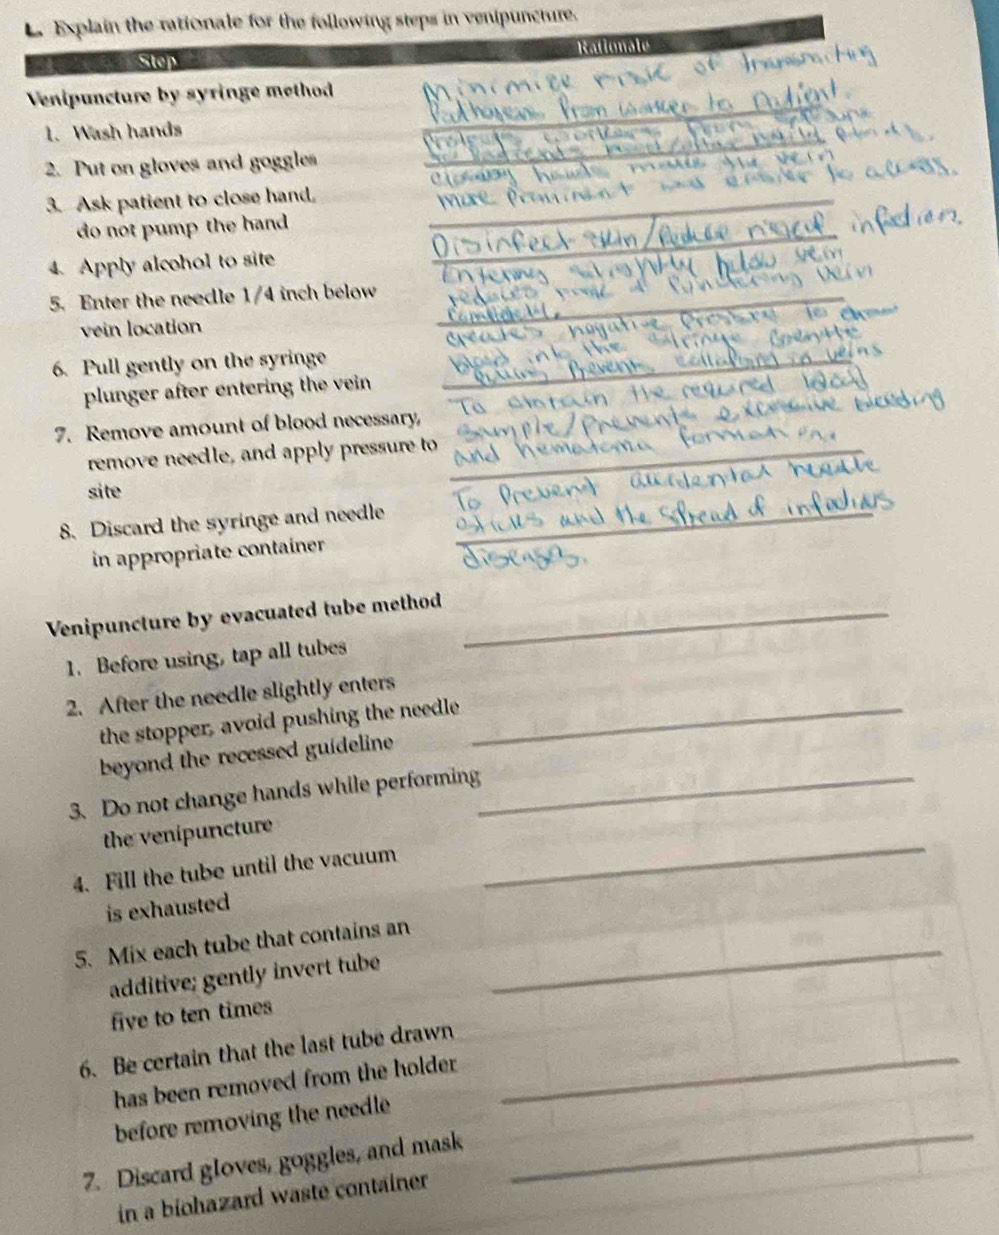 L. Explain the rationale for the following steps in venipuncture.
Step
Rationale
Venipuncture by syringe method
1. Wash hands
Minimize risk of transmitting
Pathogens from worker to Patient.
2. Put on gloves and goggles
Protects workers from
3. Ask patient to close hand,
do not pump the hand
closing hands makes the vein
more Prominent and easier to access.
4. Apply alcohol to site
Disinfect skin/Reduce infection.
5. Enter the needle 1/4 inch below
vein location
Entering slightly below vein
reduces vein
6. Pull gently on the syringe
plunger after entering the vein
creates negative Pressure to draw
blood into the syringe Gentle
Prevents in veins
7. Remove amount of blood necessary,
remove needle, and apply pressure to
site
To obtain the required blood
Sample/Prevents excessive bleeding
and hematoma formation.
8. Discard the syringe and needle
in appropriate container
To Prevent accidental needle
sticks and the spread of
diseases.
Venipuncture by evacuated tube method
1. Before using, tap all tubes
2. After the needle slightly enters
the stopper, avoid pushing the needle
beyond the recessed guideline
3. Do not change hands while performing
the venipuncture
4. Fill the tube until the vacuum
is exhausted
5. Mix each tube that contains an
additive; gently invert tube
five to ten times
6. Be certain that the last tube drawn
has been removed from the holder
before removing the needle
7. Discard gloves, goggles, and mask
in a biohazard waste container